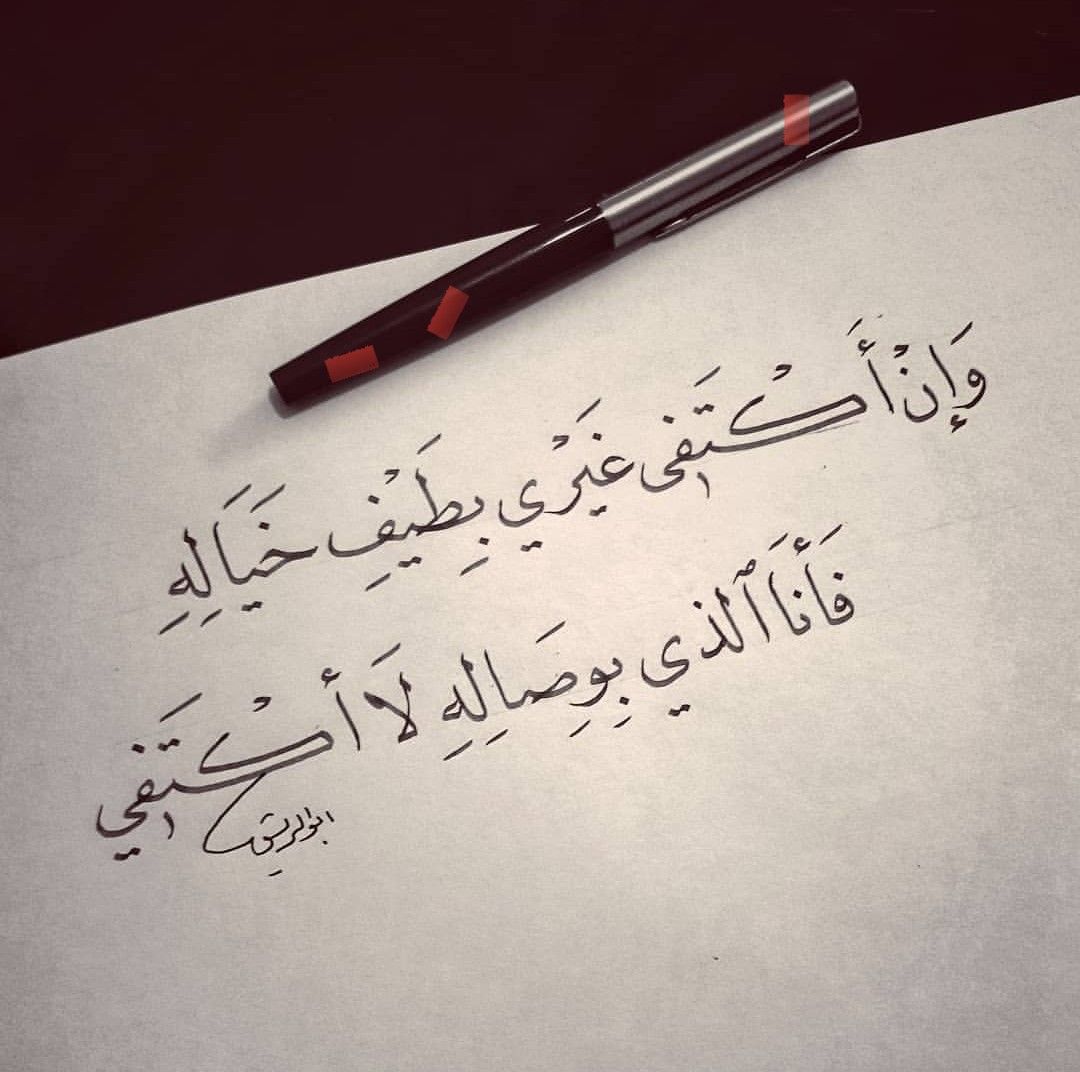 وَإِنْ أَكْتَفَى غَيْرِي بِطَيْفِ خَيَالِهِ
فَأَنَا ٱلذي بِوِصَالِهِ لَا أَكْتَفي